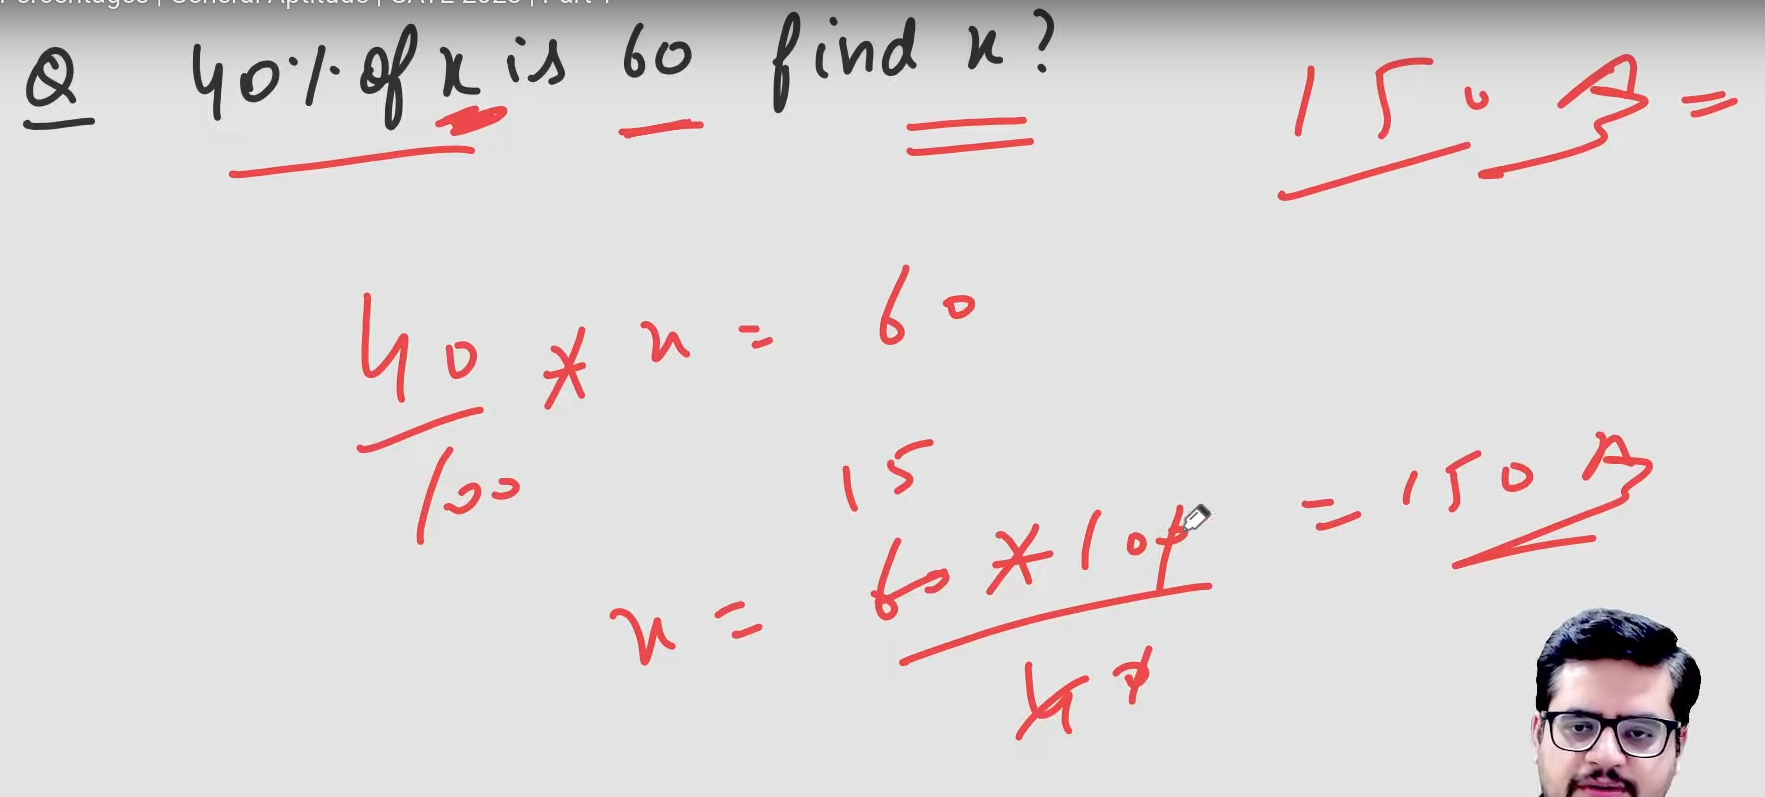 Percentages | General Aptitude | GATE 2023 | Part 1
Q 40% of x is 60 find x?
150 A =
40/100 * x = 60
15
x = 60 * 100 / 40 = 150 A